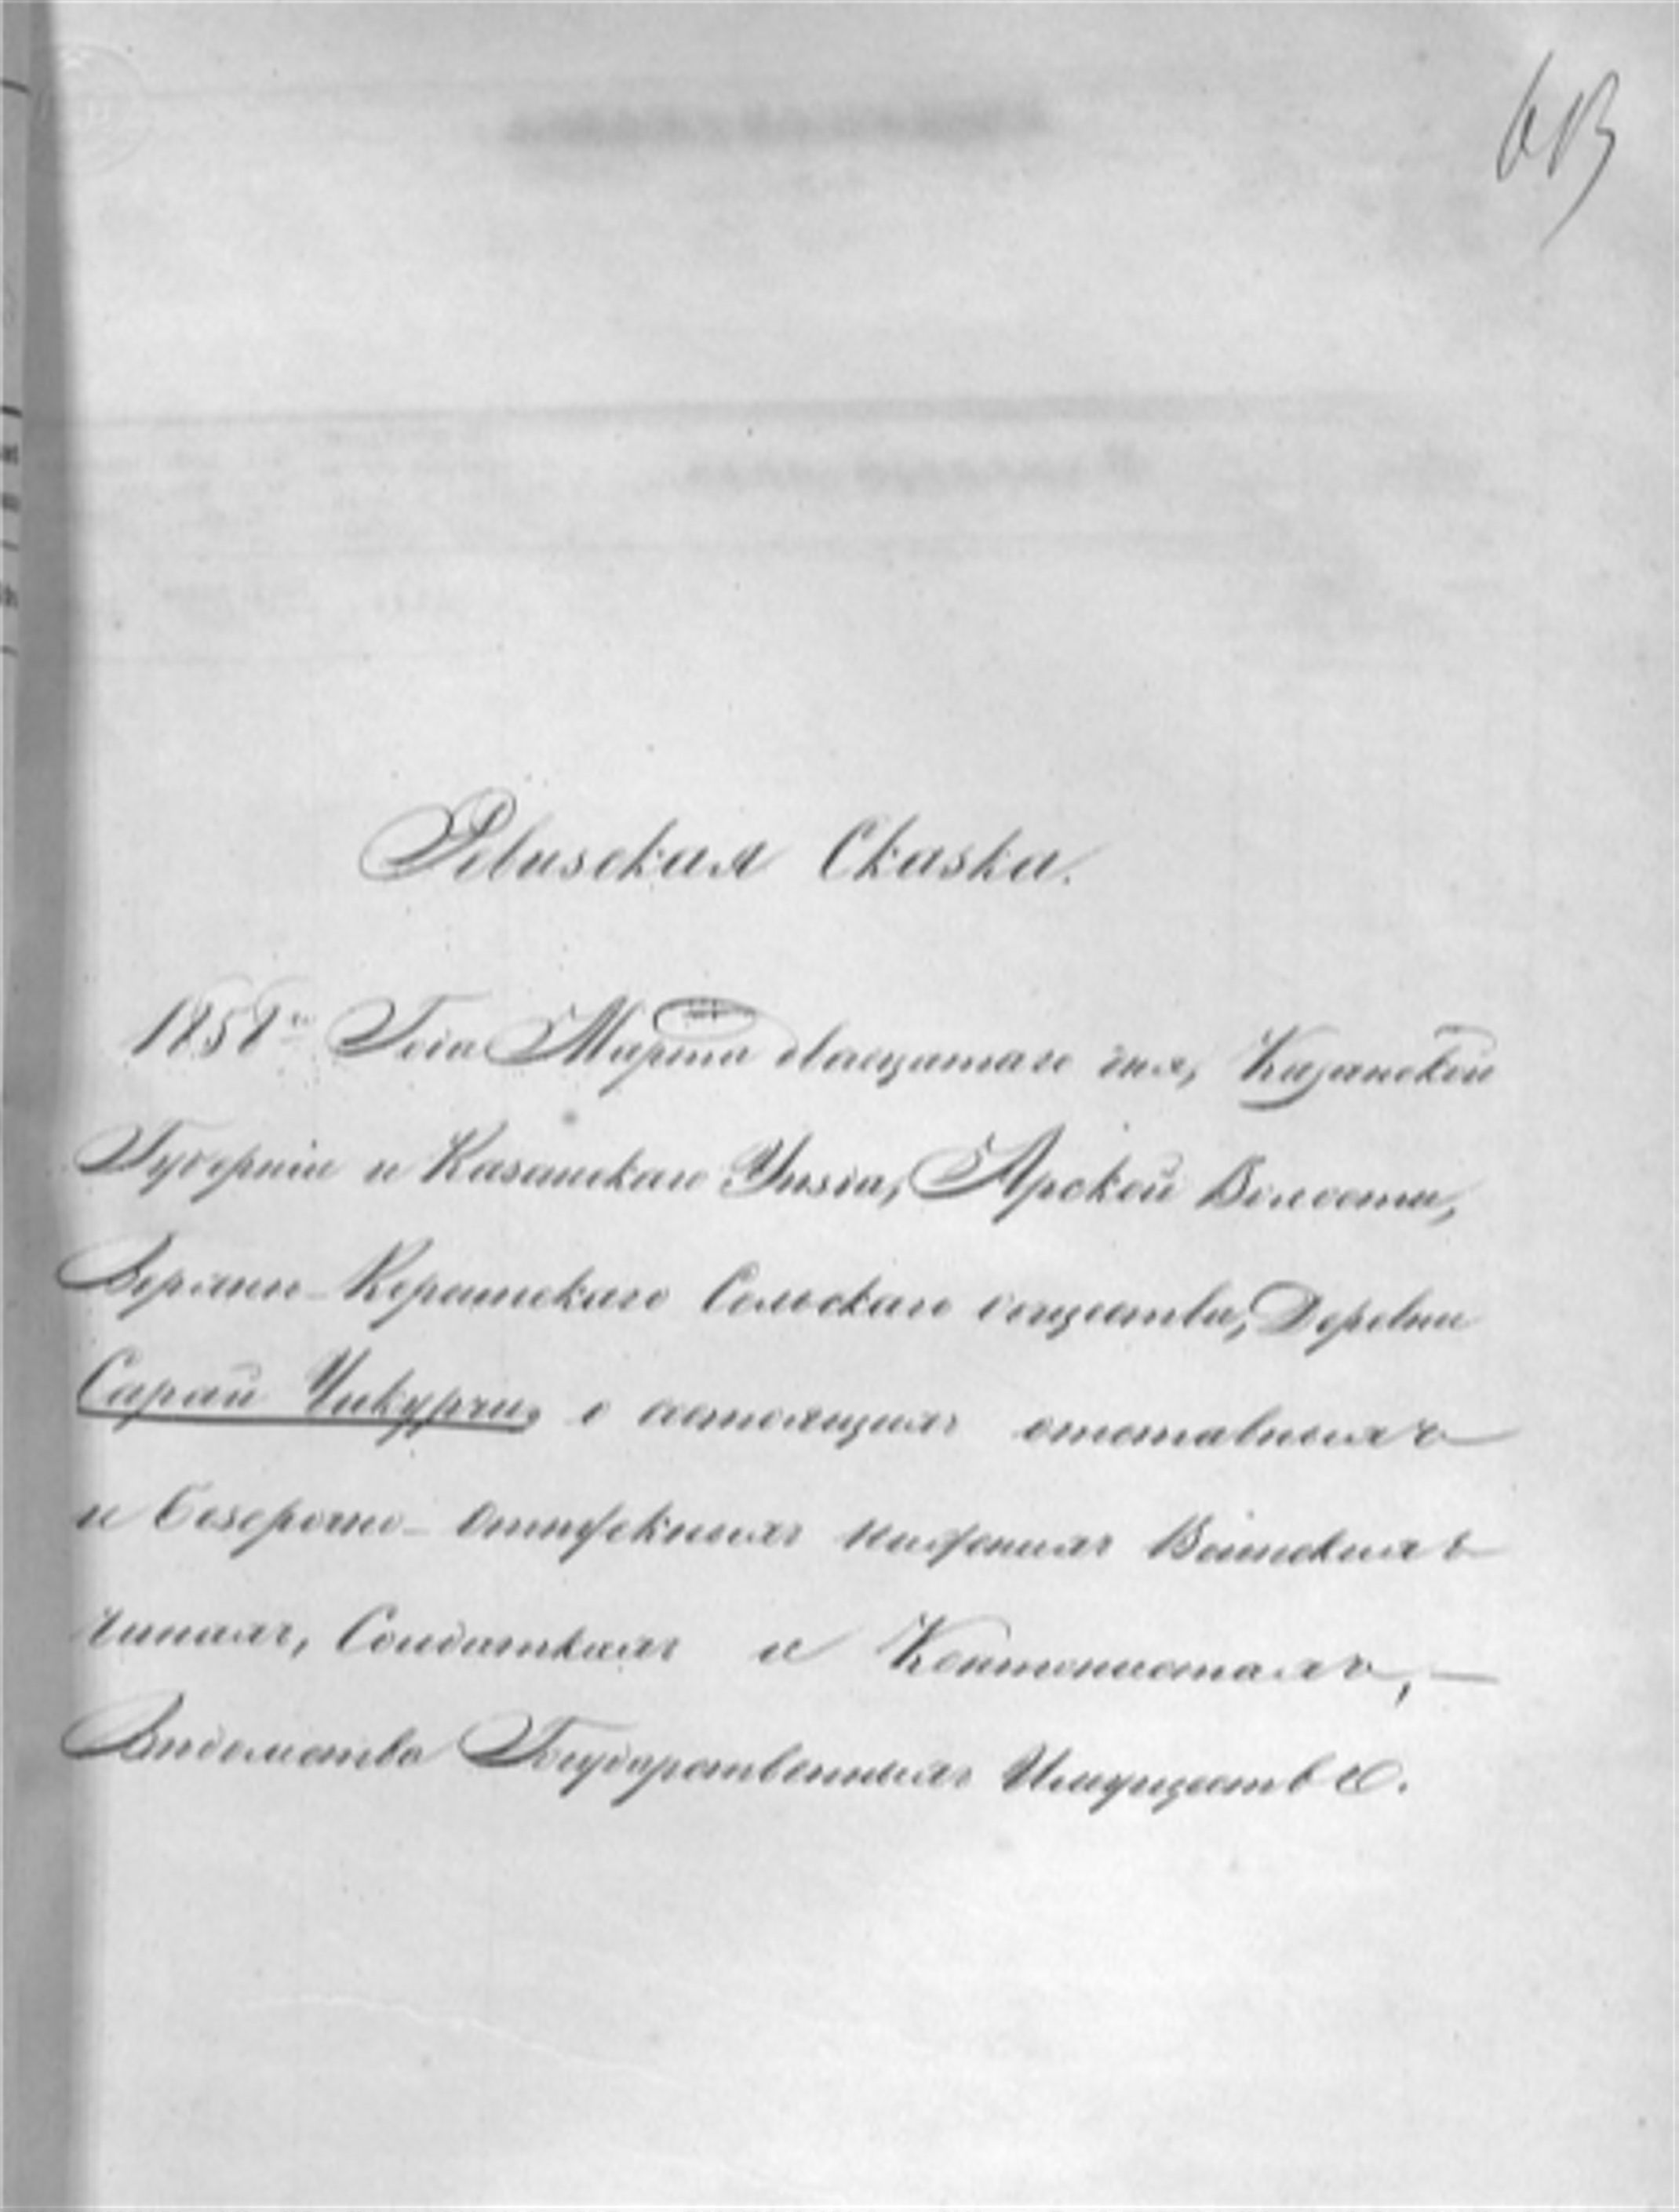 Ревизская Сказка.
1858го Года Марта двадцатаго дня, Казанской
Губерніи и Казанскаго Уѣзда, Арской Волости,
Верхне-Керметскаго Сельскаго общества, Деревни
Сарай Чикурчи, о состоящихъ отставныхъ
и безсрочно-отпускныхъ нижнихъ Воинскихъ
чинахъ, Солдаткахъ и Кантонистахъ, —
Вѣдомства Государственныхъ Имуществъ.